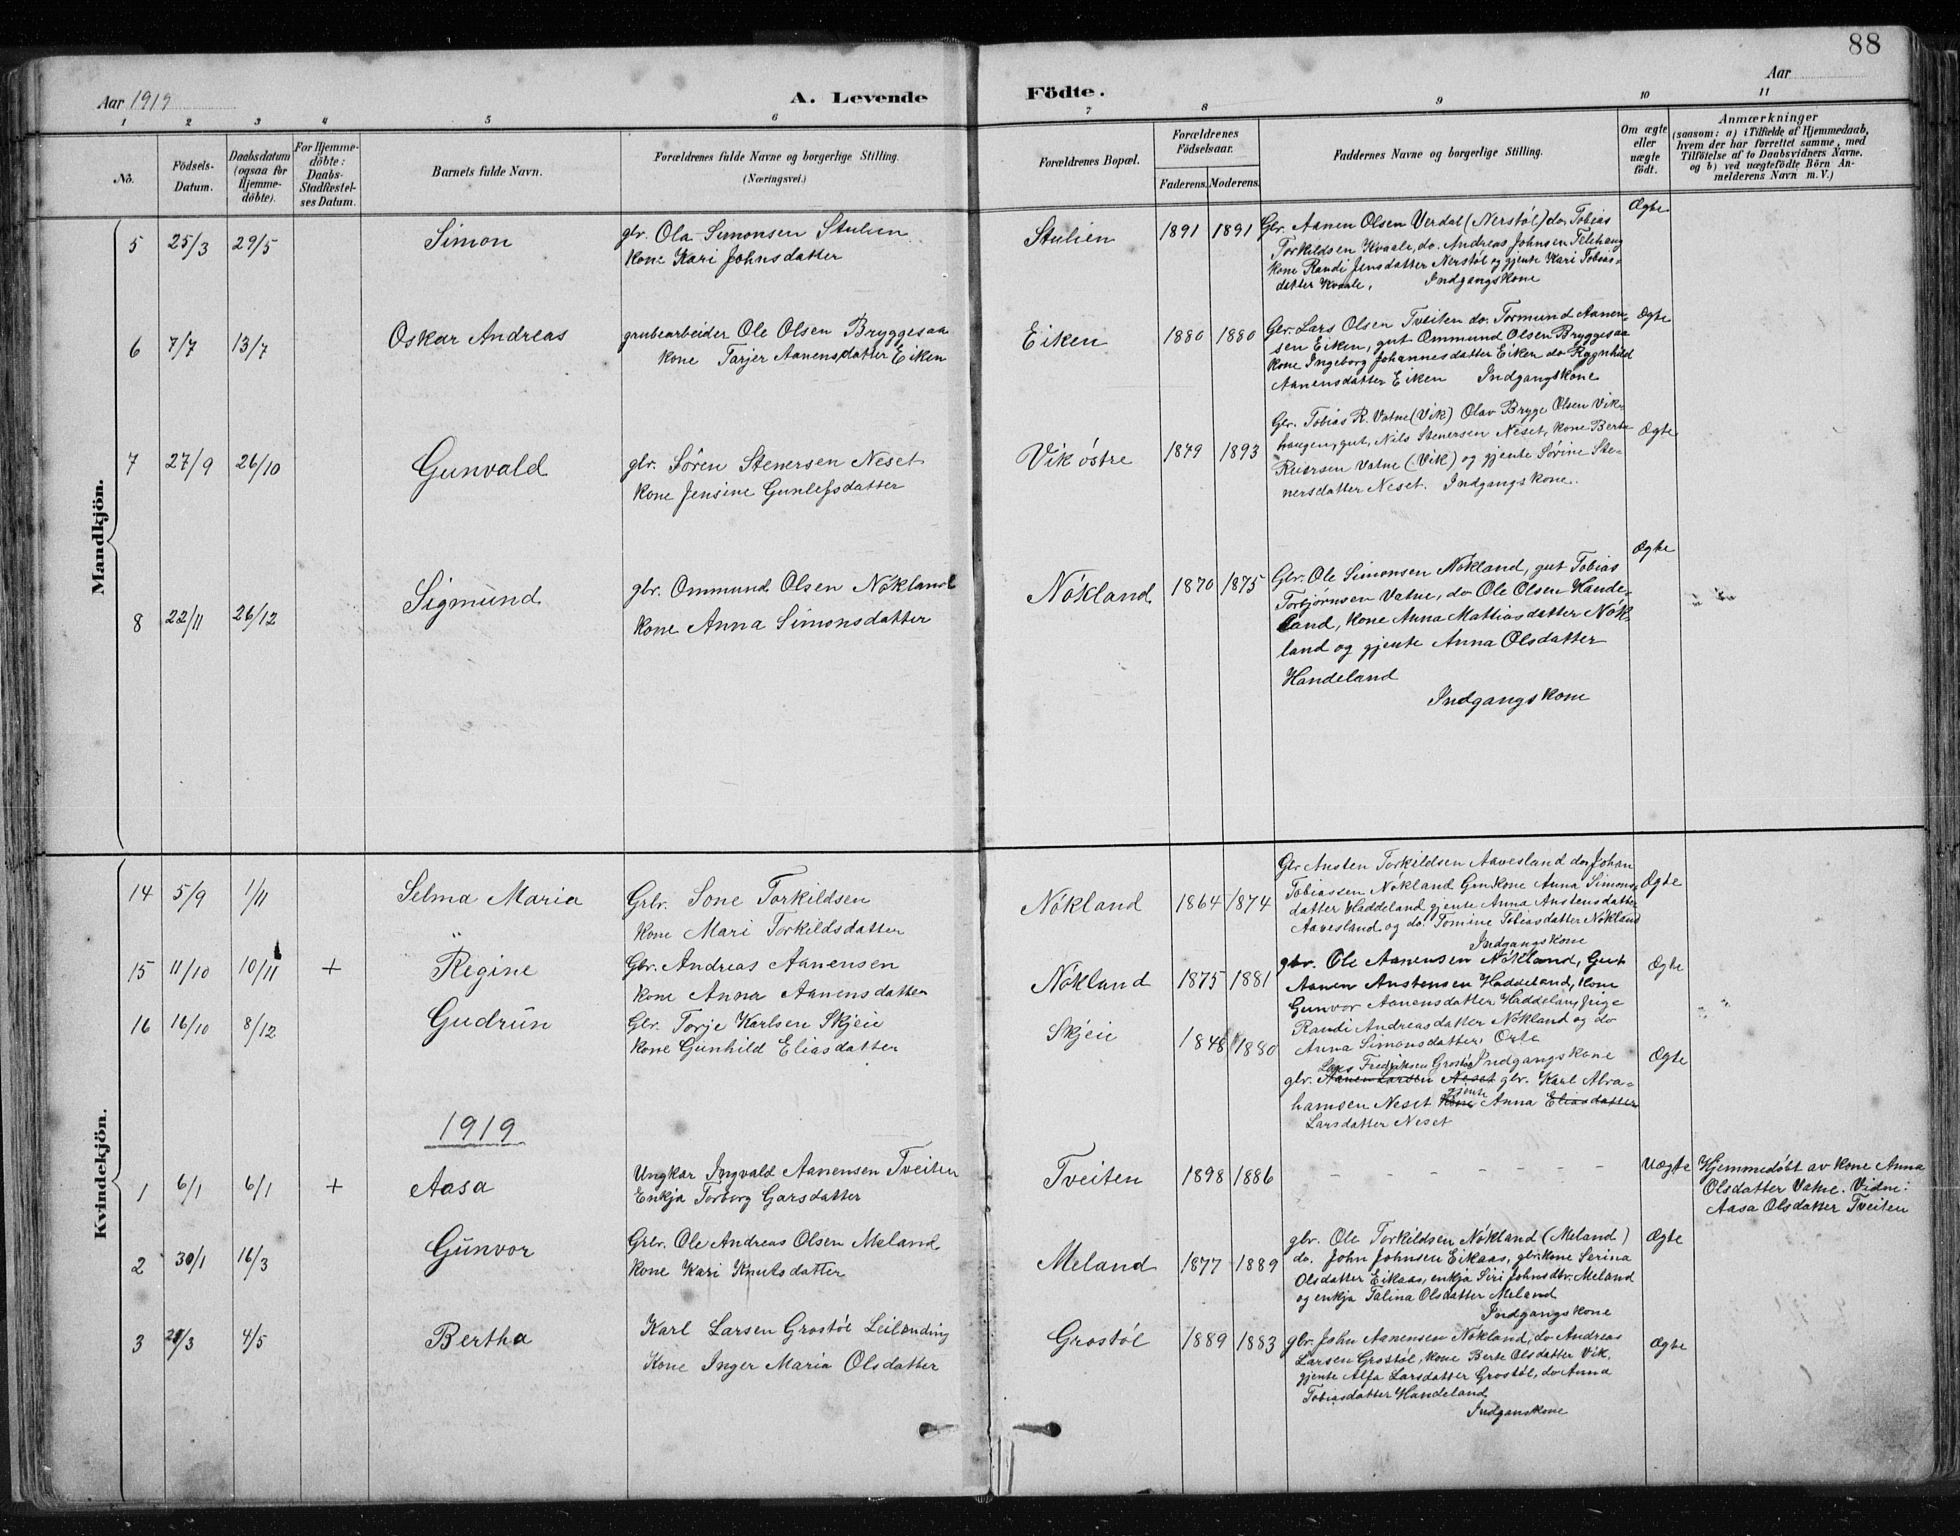 88
Aar 1919
A. Levende
Födte.
Aar
1 2 3 4 5 6 7 8 9 10 11
No.
Födsels-
Datum.
Daabsdatum
(ogsaa for
Hjemme-
döbte).
For Hjemme-
döbte:
Daabs-
Stadfæstel-
ses Datum.
Barnets fulde Navn.
Forældrenes fulde Navne og borgerlige Stilling.
(Næringsvei.)
Forældrenes Bopæl.
Forældrenes
Födselsaar.
Faderens. Moderens.
Faddernes Navne og borgerlige Stilling.
Om ægte
eller
uægte
födt.
Anmærkninger
(saasom: a) i Tilfælde af Hjemmedaab,
hvem der har forrettet samme, med
Tilföielse af to Daabsvidners Navne.
og b) ved uægtefödte Börn An-
melderens Navn m. V.)
Mandkjön.
5 25/3 29/5 Simon
gbr. Ola Simonsen Stulien
kone Kari Johnsdatter
Stulien 1891 1891
Gbr. Aanen Olsen Verdal (Nerstøl) do. Tobias
Torkildsen Kvaale, do. Andreas Johnsen Telehaug
kone Randi Jensdatter Nerstøl og gjente Kari Tobias-
datter Kvaale, Indgangskone
Ægte
6 7/7 13/7 Oskar Andreas
grubearbeider Ole Olsen Bryggesaa
kone Tarjer Aanensdatter Eiken
Eiken 1880 1880
Gbr. Lars Olsen Tveiten do. Tormund Aanen-
sen Eiken, gut Ommund Olsen Bryggesaa
kone Ingeborg Johannesdatter Eiken do Ragnhild
Aanensdatter Eiken Indgangskone
Ægte
7 27/9 26/10 Gunvald
gbr. Søren Stenersen Neset
kone Jensine Gunlefsdatter
Vik østre 1879 1893
Gbr. Tobias R. Vatne (Vik) Olav Brygge Olsen Vik-
haugen, gut, Nils Stenersen Neset, kone Berta
Reiersen Vatne (Vik) og gjente Sørine Ste-
nersdatter Neset. Indgangskone.
Ægte
8 22/11 26/12 Sigmund
gbr. Ommund Olsen Nøkland
kone Anna Simonsdatter
Nøkland 1870 1875
Gbr. Ole Simonsen Nøkland, gut Tobias
Torbjørnsen Vatne, do Ole Olsen Hande-
land, kone Anna Mattiasdatter Nøk-
land og gjente Anna Olsdatter
Handeland
Indgangskone
Ægte
Kvindekjön.
14 5/9 1/11 Selma Maria
Grbr. Sone Torkildsen
kone Mari Torkildsdatter
Nøkland 1864 1874
Gbr Austen Torkildsen Aavesland do. Johan
Tobiassen Nøkland Grukone Anna Simons-
datter Haddeland gjente Anna Austensdatter
Aavesland og do. Tomine Tobiasdatter Nøkland
Indgangskone
Ægte
15 11/10 10/11 + Regine
Gbr. Andreas Aanensen
kone Anna Aanensdatter
Nøkland 1875 1881
gbr. Ole Aanensen Nøkland, Gut
Aanen Austensen Haddeland, kone
Gunvor Aanensdatter Haddeland, pige
Randi Andreasdatter Nøkland og do
Anna Simonsdatter,
Indgangskone
Ægte
16 16/10 8/12 Gudrun
Gbr. Torje Karlsen Skjeie
kone Gunhild Eliasdatter
Skjeie 1848 1880
Lars Fredriksen Grostøl
gbr. Aanen Larsen Neset gbr. Karl Abra-
gjente
hamsen Neset kone Anna Eliasdatter
Larsdatter Neset
Ægte
1919
1 6/1 6/1 + Aasa
Ungkar Ingvald Aanensen Tveiten
Enkja Torborg Garsdatter
Tveiten 1898 1886
- - - - - - -
Uægte
Hjemmedøbt av kone Anna
Olsdatter Vatne. Vidne:
Aasa Olsdatter Tveiten
2 30/1 16/3 Gunvor
Grbr. Ole Andreas Olsen Meland
kone Kari Knutsdatter
Meland 1877 1889
gbr. Ole Torkildsen Nøkland (Meland)
do. John Johnsen Eikaas, gbr.kone Serina
Olsdatter Eikaas, enkja Siri Johnsdtr. Meland
og enkja Talina Olsdatter Meland
Indgangskone
Ægte
3 21/3 4/5 Bertha
Karl Larsen Grostøl Leilending
Kone Inger Maria Olsdatter
Grostøl 1889 1883
gbr. John Aanensen Nøkland, do Andreas
Larsen Grostøl, kone Berte Olsdatter Vik,
gjente Alfa Larsdatter Grostøl, do Anna
Tobiasdatter Handeland
Indganskone
Ægte